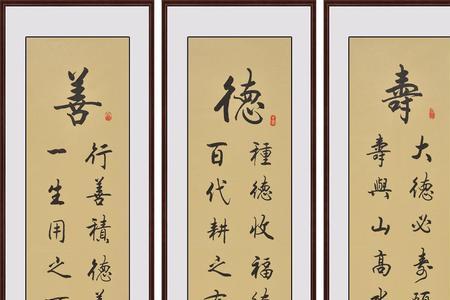 善
行善積德善
一生用之
德
種德收福德
百代耕之有
壽
大德必壽
壽與山高水